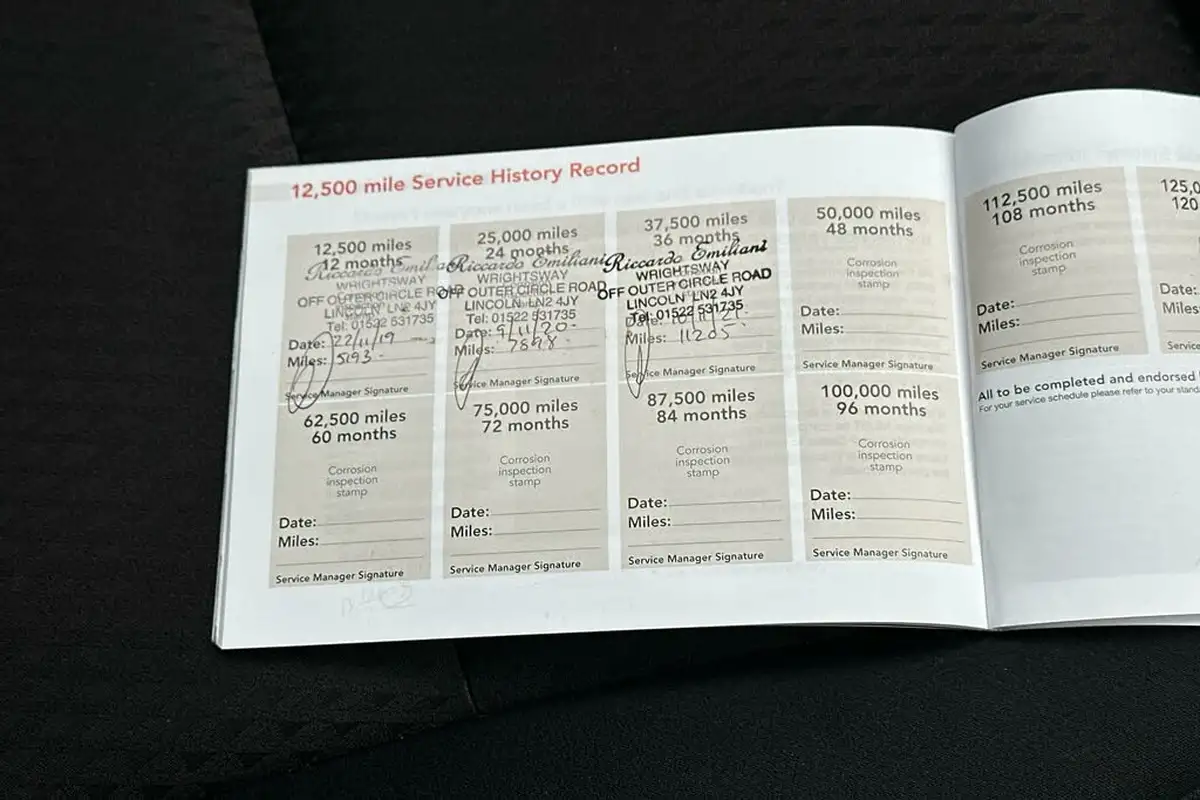 12,500 mile Service History Record
12,500 miles
12 months
Riccardo Emil
WRIGHTSWAY
OFF OUTER CIRCLE ROAD
LINCOLN LN2 4JY
Tel: 01522 531735
Date: 22/11/19
Miles: 5193
Service Manager Signature
25,000 miles
24 months
Riccardo Emiliani
WRIGHTSWAY
OFF OUTER CIRCLE ROAD
LINCOLN LN2 4JY
Tel: 01522 531735
Date: 9/11/20
Miles: 7898
Service Manager Signature
37,500 miles
36 months
Riccardo Emiliani
WRIGHTSWAY
OFF OUTER CIRCLE ROAD
LINCOLN LN2 4JY
Tel: 01522 531735
Date: 10/11/21
Miles: 11205
Service Manager Signature
50,000 miles
48 months
Corrosion
inspection
stamp
Date:
Miles:
Service Manager Signature
62,500 miles
60 months
Corrosion
inspection
stamp
Date:
Miles:
Service Manager Signature
75,000 miles
72 months
Corrosion
inspection
stamp
Date:
Miles:
Service Manager Signature
87,500 miles
84 months
Corrosion
inspection
stamp
Date:
Miles:
Service Manager Signature
100,000 miles
96 months
Corrosion
inspection
stamp
Date:
Miles:
Service Manager Signature
112,500 miles
108 months
Corrosion
inspection
stamp
Date:
Miles:
Service Manager Signature
125,0
120
Date:
Miles
Service
All to be completed and endorsed
For your service schedule please refer to your stand